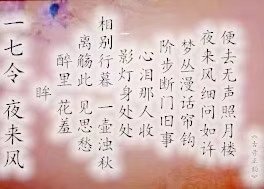 一七令 夜来风
眸
醉里 花羞
离觞此 见思愁
相别行暮 一壶浊秋
影灯身处处
心泪那人收
阶步断门旧事
梦丛漫话帘钩
夜来风细问如许
便去无声照月楼